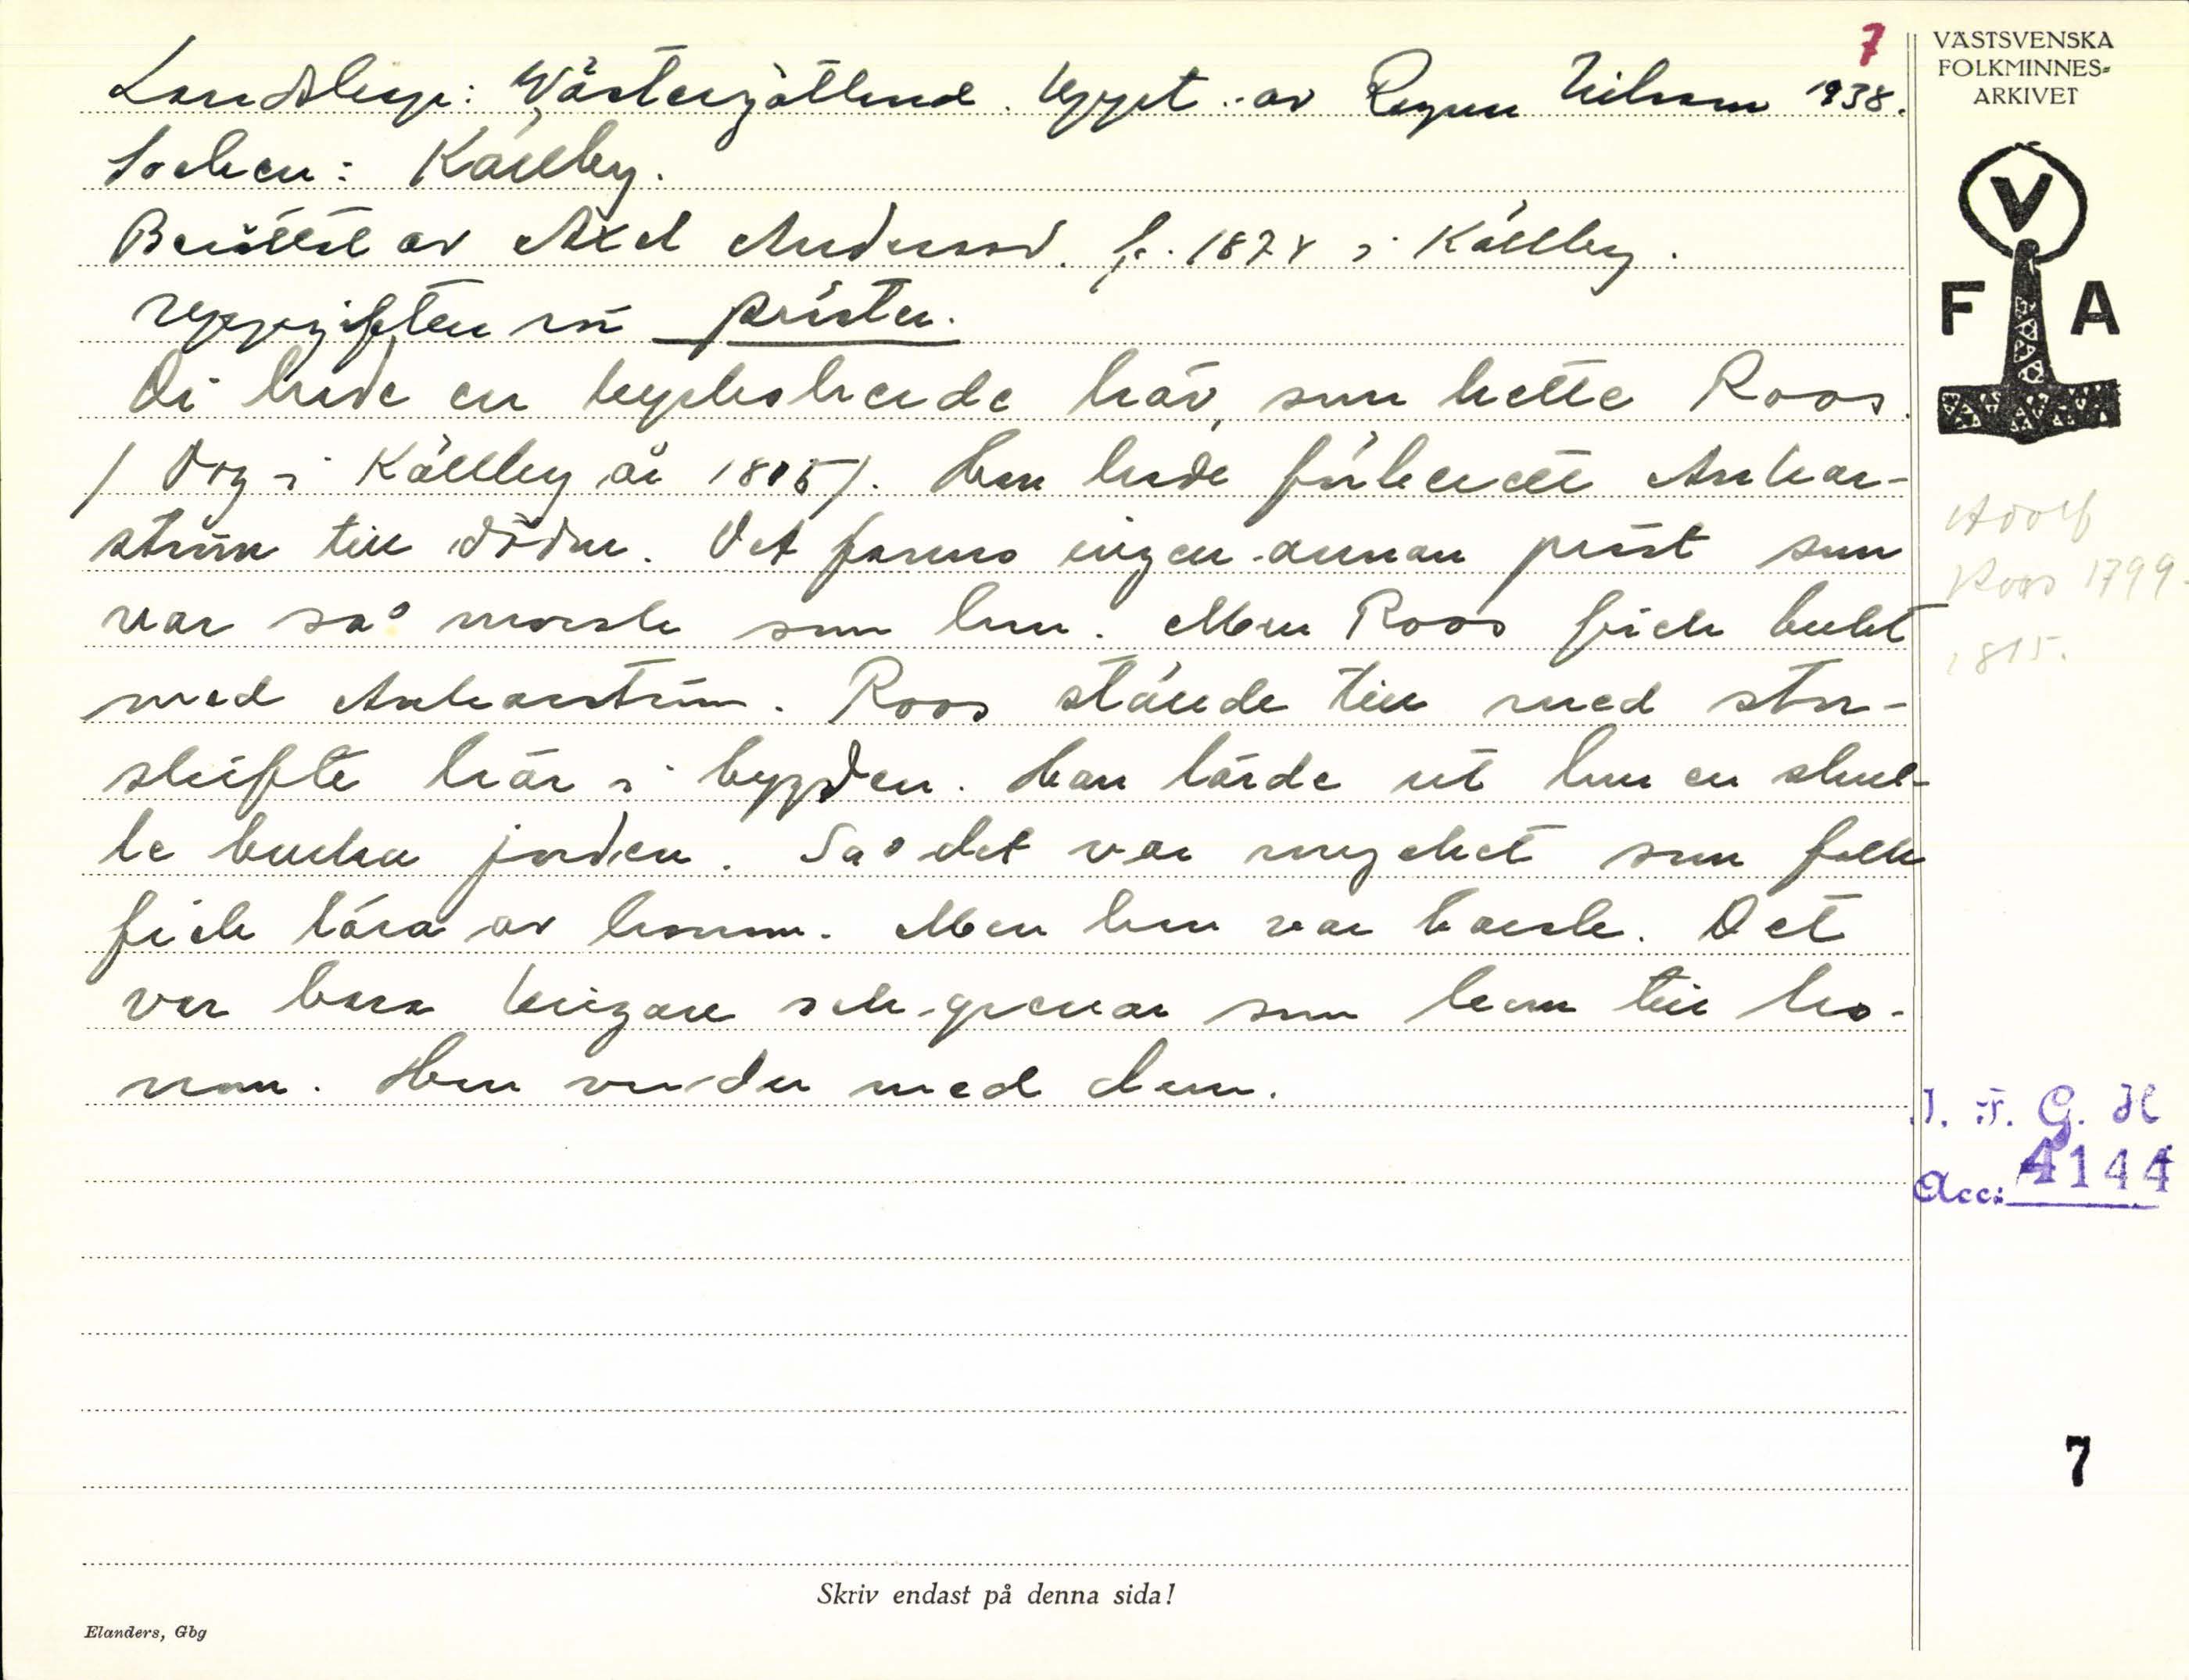 7
Landskap: Västergötland. Uppt. av Ragnar Nilsson 1938.
Socken: Källby.
Berättat av Axel Andersson. f. 1874 i Källby.
Uppgiften rör präster.
Di hade en kyrkoherde här, som hette Roos.
/ Dog i Källby år 1815/. Han hade förberett Ankar-
ström till döden. Det fanns ingen annan präst som
var så morsk som han. Men Roos fick bukt
med Ankarström. Roos ställde till med stor-
skifte här i bygden. Han lärde ut hur en skul-
le bruka jorden. Så det var mycket som folk
fick lära av honom. Men han var barsk. Det
var bara krigare och grevar som kom till ho-
nom. Han med dem.
VÄSTSVENSKA
FOLKMINNES-
ARKIVET
V
F A
Adolf
Roos 1799-
1815.
I. F. G. H
Acc: 4144
7
Skriv endast på denna sida!
Elanders, Gbg